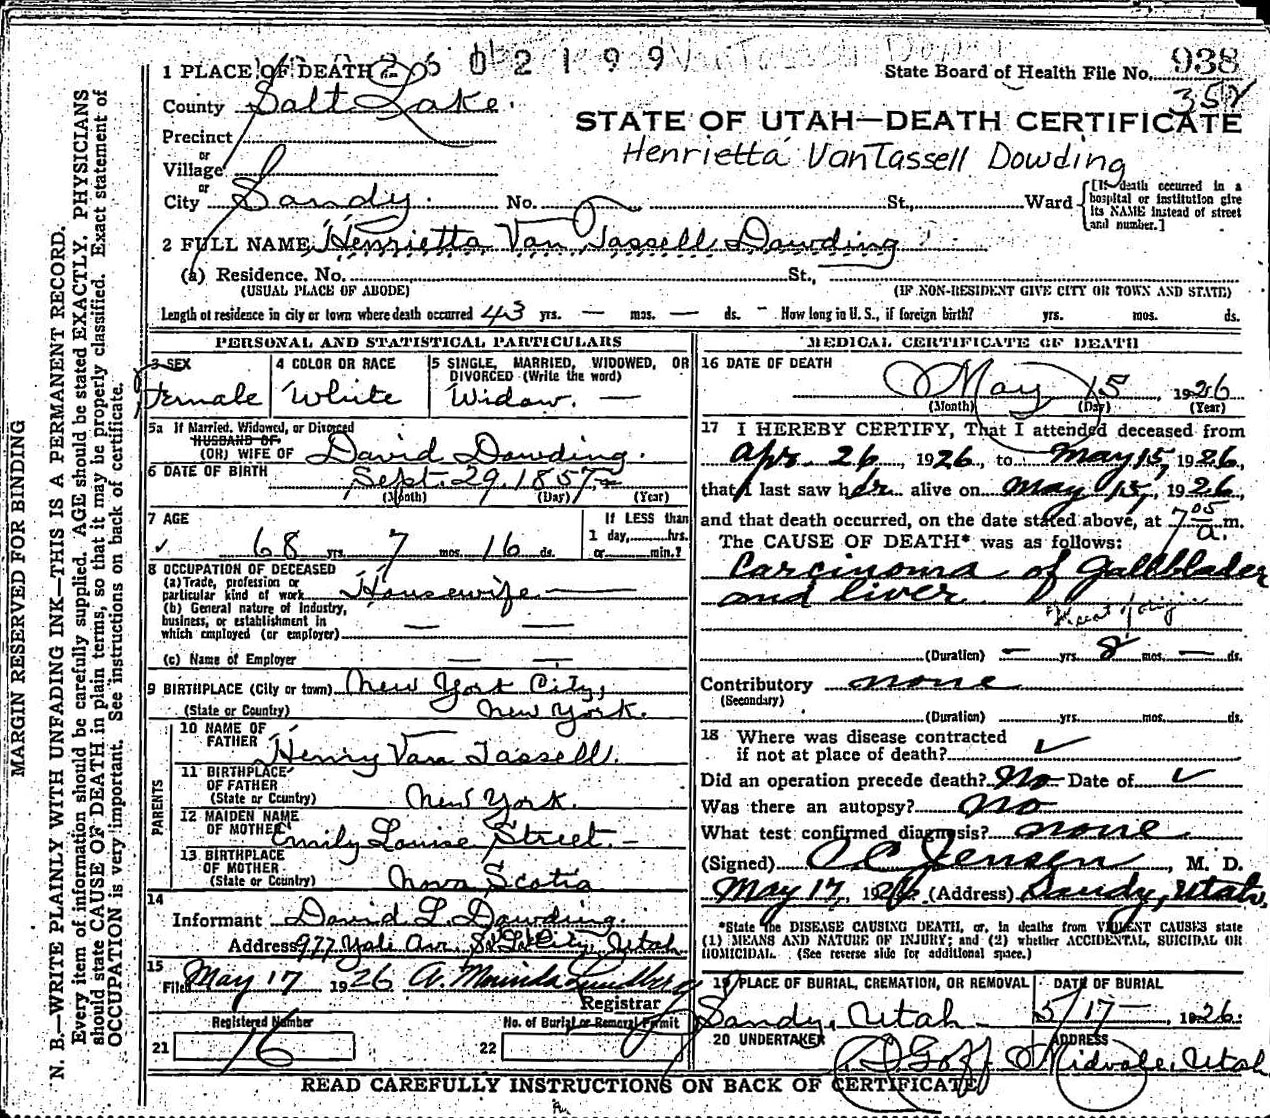 1 PLACE OF DEATH 2602199
State Board of Health File No. 938
352
County Salt Lake.
STATE OF UTAH—DEATH CERTIFICATE
Precinct
or
Henrietta VanTassell Dowding
Village
or
City Sandy. No. St., Ward
[If death occurred in a hospital or institution give its NAME instead of street and number.]
2 FULL NAME Henrietta Van Tassell Dowding
(a) Residence. No. St.,
(USUAL PLACE OF ABODE) (IF NON-RESIDENT GIVE CITY OR TOWN AND STATE)
Length of residence in city or town where death occurred 43 yrs. — mos. — ds. How long in U. S., if foreign birth? yrs. mos. ds.
PERSONAL AND STATISTICAL PARTICULARS
3 SEX 4 COLOR OR RACE 5 SINGLE, MARRIED, WIDOWED, OR
DIVORCED (Write the word)
Female White Widow. —
5a If Married, Widowed, or Divorced
HUSBAND OF
(OR) WIFE OF David Dowding.
6 DATE OF BIRTH Sept. 29, 1857
(Month) (Day) (Year)
7 AGE If LESS than
1 day, hrs.
68 yrs. 7 mos. 16 ds. or min.?
8 OCCUPATION OF DECEASED
(a) Trade, profession or
particular kind of work Housewife —
(b) General nature of industry,
business, or establishment in
which employed (or employer) — —
(c) Name of Employer — —
9 BIRTHPLACE (City or town) New York City,
(State or Country) New York.
PARENTS
10 NAME OF
FATHER Henry Van Tassell.
11 BIRTHPLACE
OF FATHER
(State or Country) New York.
12 MAIDEN NAME
OF MOTHER Emily Louise Street. —
13 BIRTHPLACE
OF MOTHER
(State or Country) Nova Scotia
14
Informant David L Dowding.
Address 977 Yale Ave. S. L. City, Utah
15
Filed May 17 1926 A. Lundberg
Registrar
Registered Number No. of Burial or Removal Permit
21 16 22
MEDICAL CERTIFICATE OF DEATH
16 DATE OF DEATH
May 15 1926
(Month) (Day) (Year)
17 I HEREBY CERTIFY, That I attended deceased from
Apr. 26, 1926, to May 15, 1926,
that I last saw her alive on May 15, 1926,
and that death occurred, on the date stated above, at 7 05 a. m.
The CAUSE OF DEATH* was as follows:
Carcinoma of Gallblader
and liver
(Duration) — yrs. 8 mos. — ds.
Contributory none
(Secondary)
(Duration) yrs. mos. ds.
18 Where was disease contracted
if not at place of death? ✓
Did an operation precede death? No Date of ✓
Was there an autopsy? no
What test confirmed diagnosis? none
(Signed) O C Jensen, M. D.
May 17, 1926 (Address) Sandy, Utah,
*State the DISEASE CAUSING DEATH, or, in deaths from VIOLENT CAUSES state
(1) MEANS AND NATURE OF INJURY; and (2) whether ACCIDENTAL, SUICIDAL OR
HOMICIDAL. (See reverse side for additional space.)
19 PLACE OF BURIAL, CREMATION, OR REMOVAL DATE OF BURIAL
Sandy, Utah 5/17 — , 1926.
20 UNDERTAKER ADDRESS
Goff Midvale, Utah
READ CAREFULLY INSTRUCTIONS ON BACK OF CERTIFICATE
MARGIN RESERVED FOR BINDING
N. B.—WRITE PLAINLY WITH UNFADING INK—THIS IS A PERMANENT RECORD.
Every item of information should be carefully supplied. AGE should be stated EXACTLY. PHYSICIANS
should state CAUSE OF DEATH in plain terms, so that it may be properly classified. Exact statement of
OCCUPATION is very important. See instructions on back of certificate.